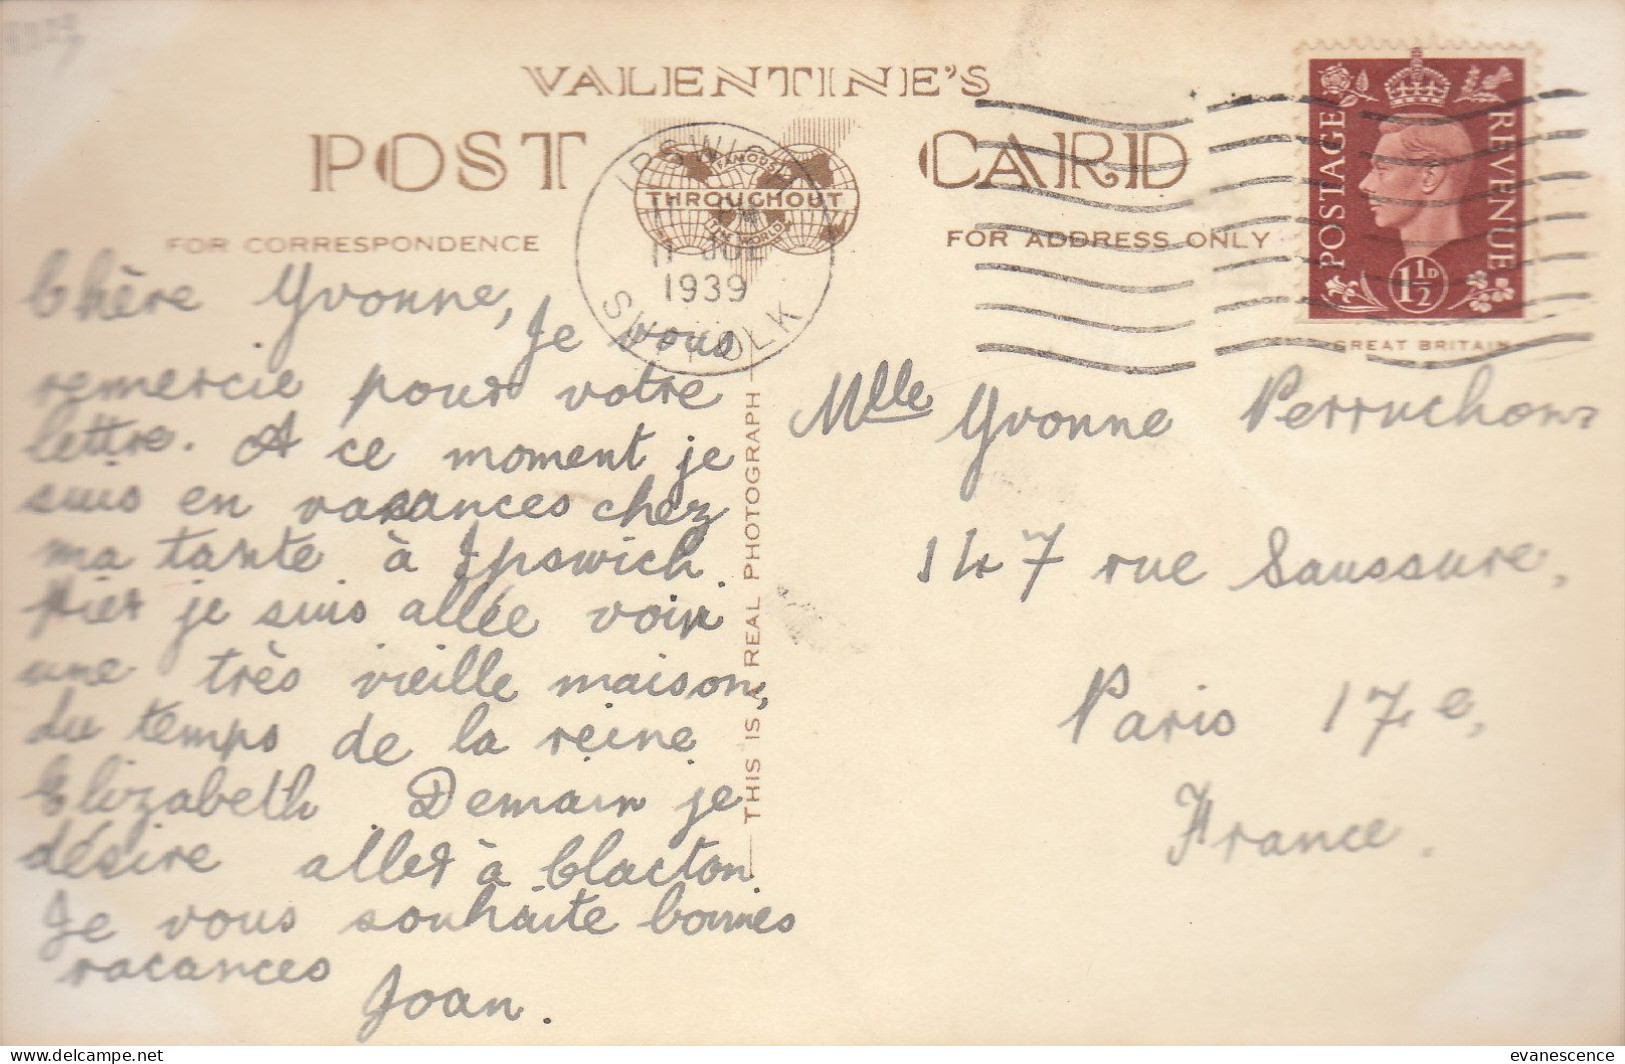 VALENTINE'S
POST CARD
FAMOUS
THROUGHOUT
THE WORLD
IPSWICH
11 JUL
1939
SUFFOLK
POSTAGE REVENUE
1½D
FOR CORRESPONDENCE
FOR ADDRESS ONLY
GREAT BRITAIN
Chère Yvonne,
Je vous
remercie pour votre
lettre. A ce moment je
suis en vacances chez
ma tante à Ipswich.
Hier je suis allée voir
une très vieille maison,
du temps de la reine
Elizabeth Demain je
désire aller à Clacton.
Je vous souhaite bonnes
vacances
Joan.
THIS IS A REAL PHOTOGRAPH
Mlle Yvonne Perruchon
147 rue Saussure,
Paris 17e,
France.
evanescence